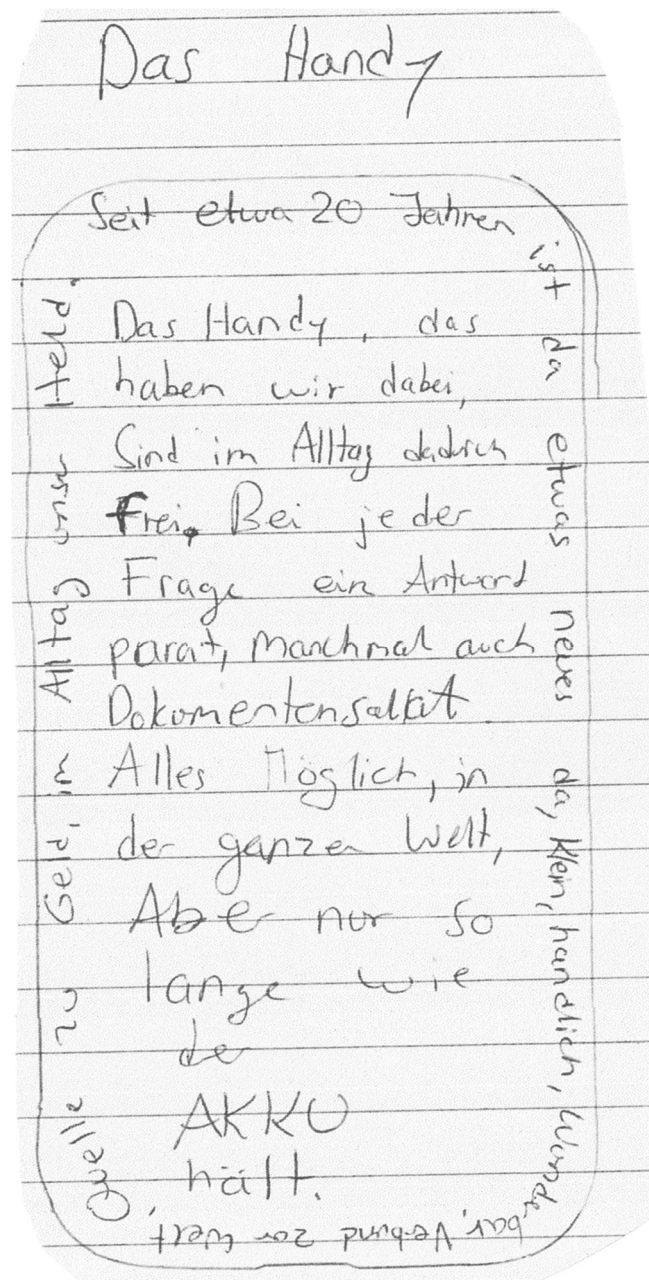 Das Handy
Seit etwa 20 Jahren
ist da etwas neues da, klein, handlich, Wunderbar,
Verbund zur Welt,
Quelle zu Geld, im Alltag unser Held.
Das Handy, das
haben wir dabei,
Sind im Alltag dadurch
Frei. Bei jeder
Frage ein Antwort
parat, Manchmal auch
Alles Möglich, in
der ganzen Welt,
Aber nur so
lange wie
der
AKKU
hält.